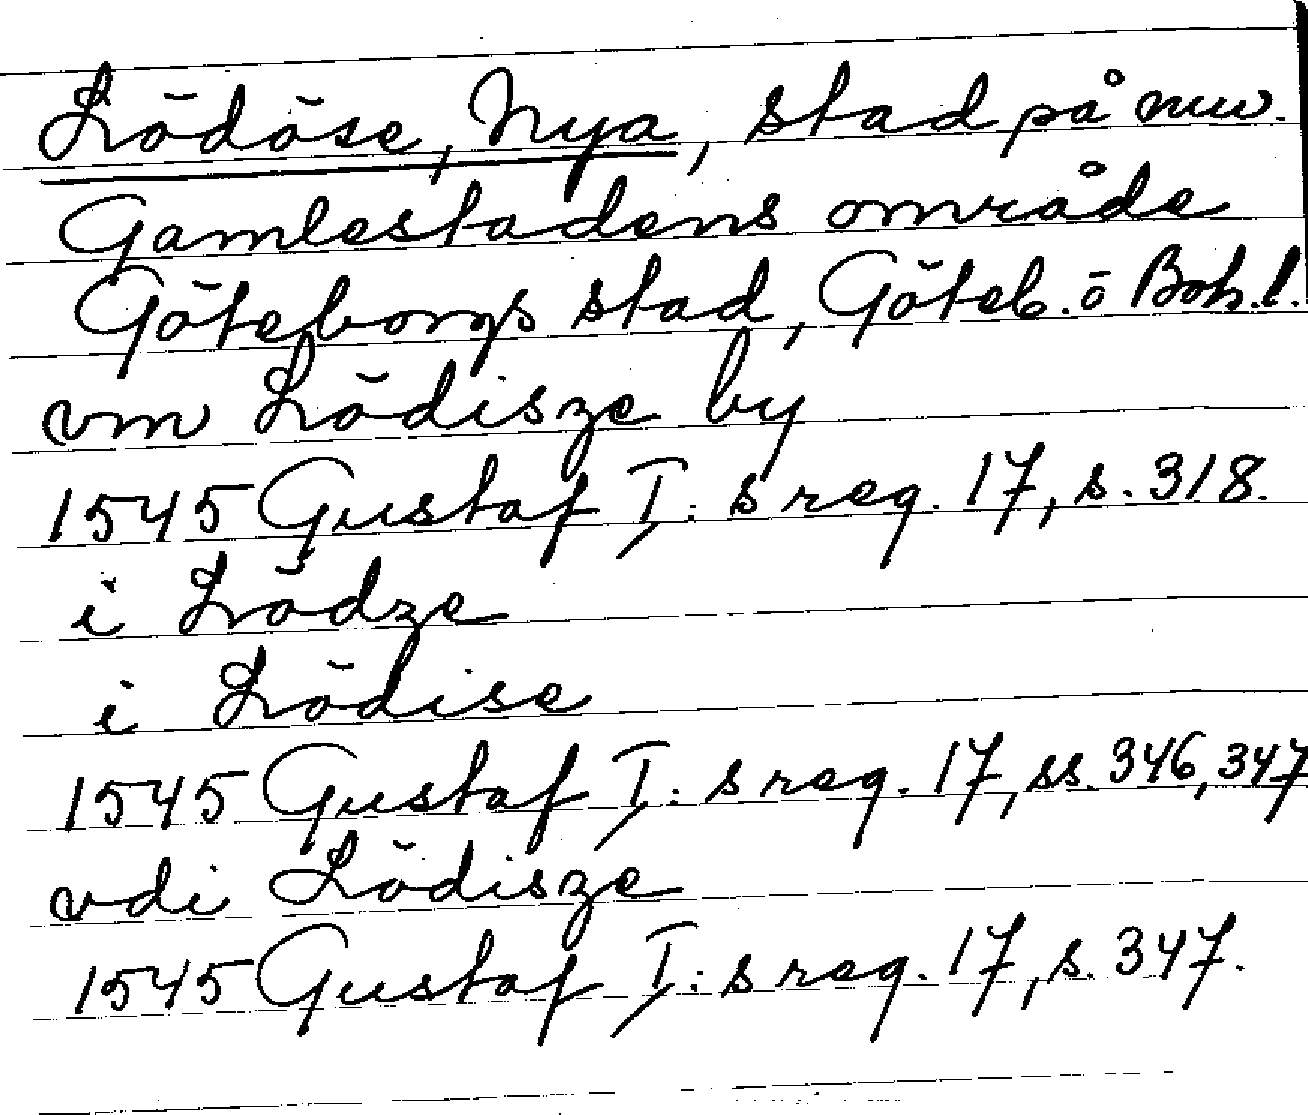 Lödöse, Nya, stad på nuv.
Gamlestadens område
Göteborgs stad, Göteb. o Boh. l.
vm Lödisze by
1545 Gustaf I: s reg. 17, s. 318.
i Lödze
i Lödise
1545 Gustaf I: s reg. 17, ss. 346, 347
vdi Lödisze
1545 Gustaf I: s reg. 17, s. 347.